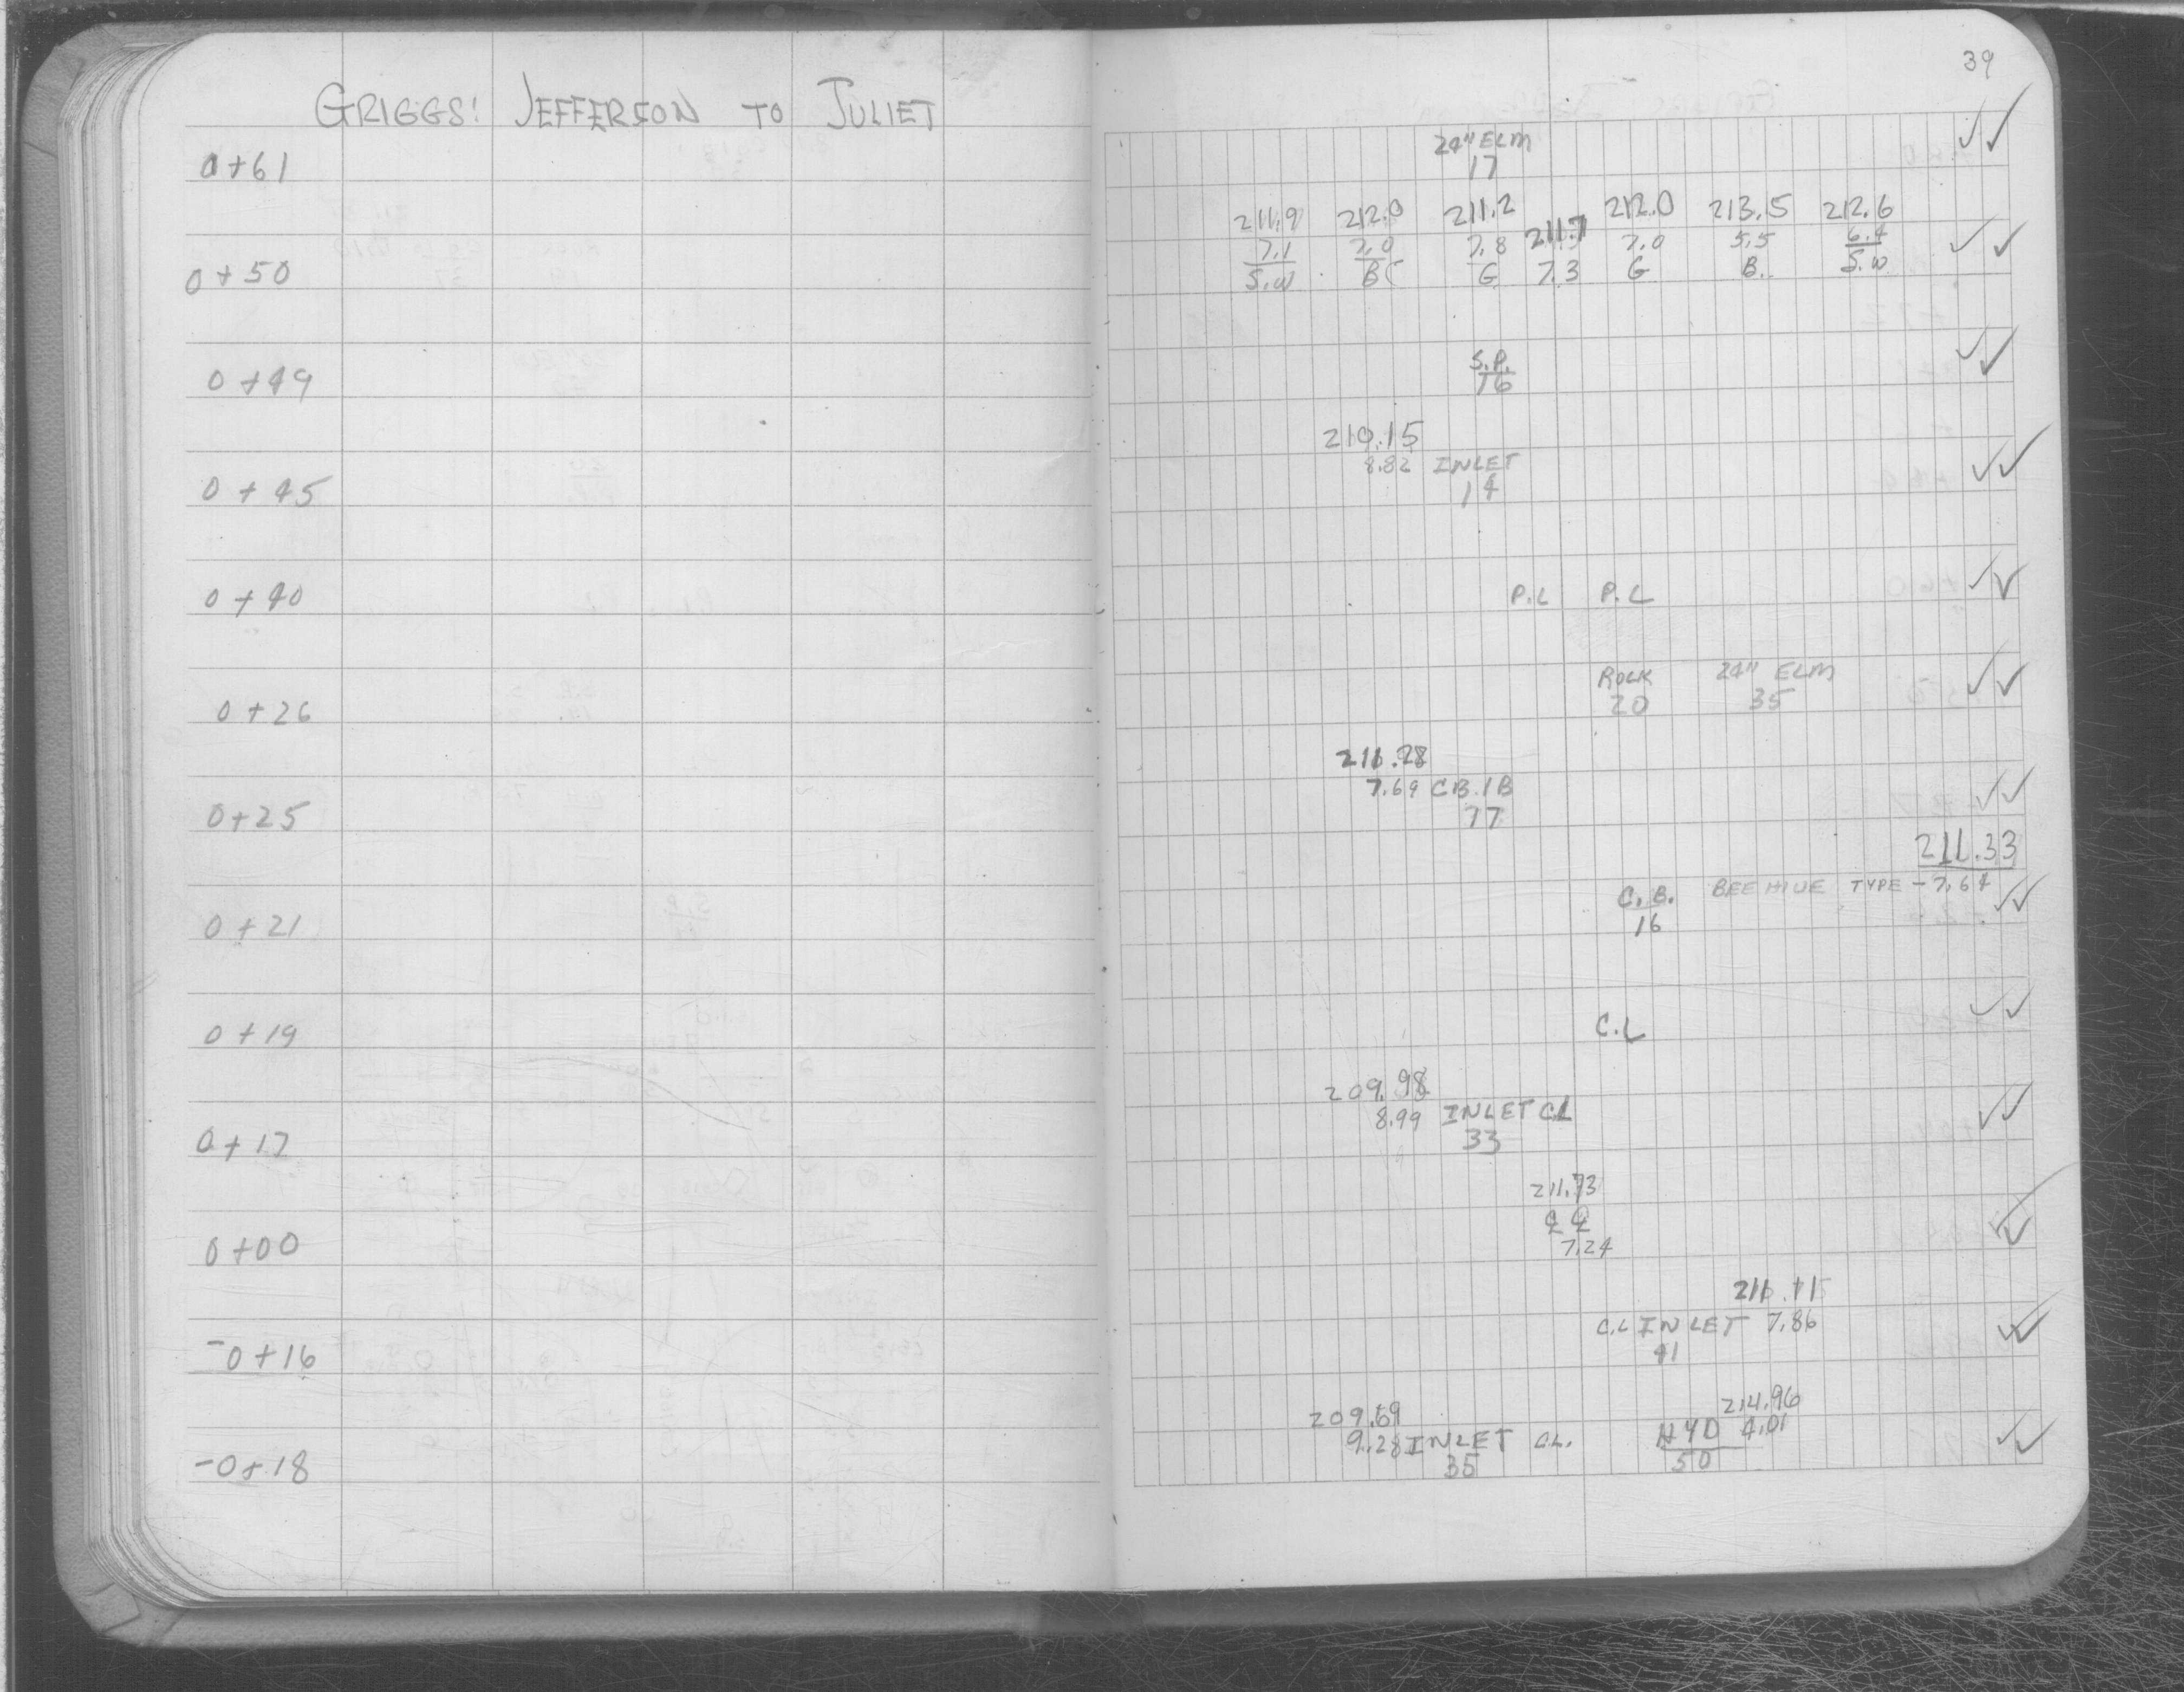 39
GRIGGS: JEFFERSON TO JULIET
0+61
24" ELM
17
211.9 212.0 211.2 211.7 212.0 213.5 212.6
7.1 7.0 7.8 7.3 7.0 5.5 6.4
0+50
S.W BC G G B. S.W
0+49
S.P.
16
210.15
8.82 INLET
0+45
14
0+40
P.L P.L
ROCK 24" ELM
0+26
20 35
211.28
7.69 CB.1B
0+25
17
211.33
C.B. BEEHIVE TYPE - 7.64
0+21
16
0+19
C.L
209.98
8.99 INLET CL
0+17
33
211.73
0+00
7.24
211.11
C.L INLET 7.86
-0+16
41
209.69 214.96
9.28 INLET CL. HYD 4.01
-0+18
35 50